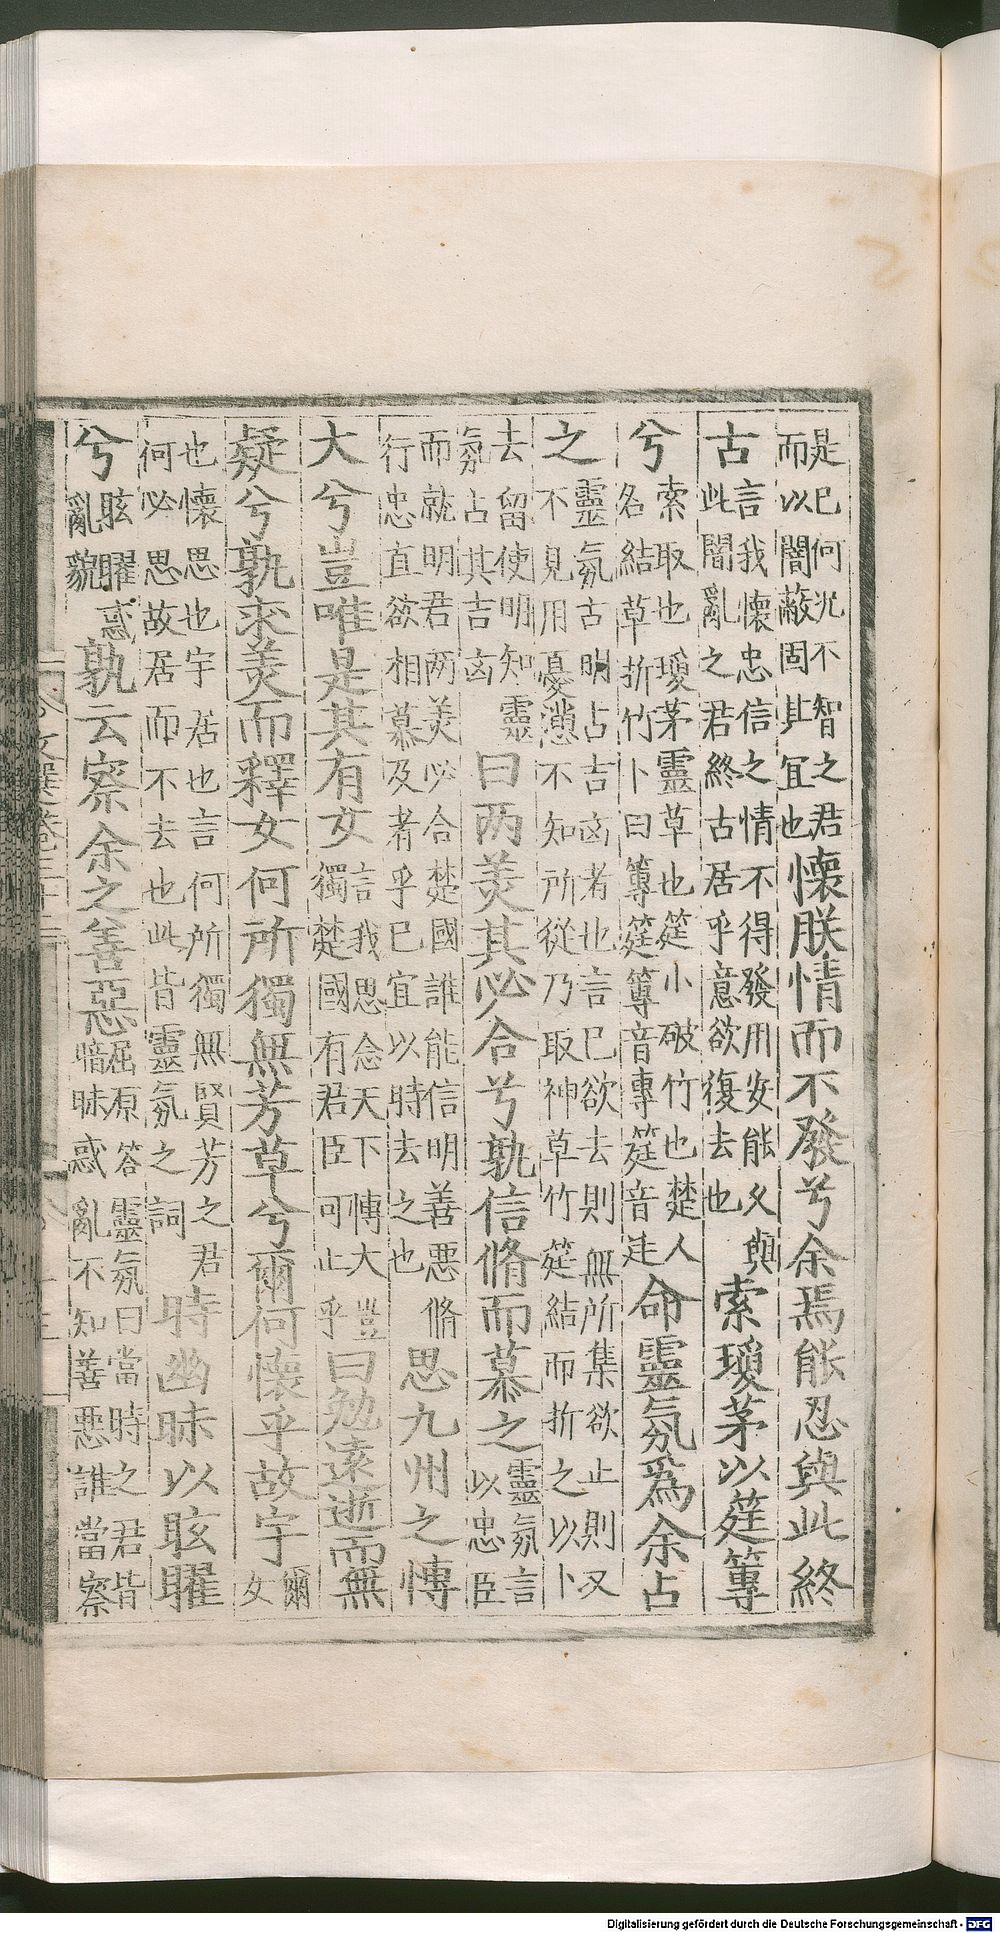 是已何况不智之君
而以闇蔽固其宜也懷朕情而不發兮余焉能忍與此終
言我懷忠信之情不得發用安能久與
古此闇亂之君終古居乎意欲復去也索瓊茅以筳篿
索取也瓊茅靈草也筳小破竹也楚人
兮名結草折竹卜曰篿筳篿音專筳音廷命靈氛爲余占
靈氛古明占吉凶者也言已欲去則無所集欲止則又
之不見用憂懣不知所從乃取神草竹筳結而折之以卜
去留使明知靈
氛占其吉凶曰两美其必合兮孰信脩而慕之靈氛言以忠臣
而就明君两美必合楚國誰能信明善惡脩
行忠直欲相慕及者乎已宜以時去之也思九州之慱
大兮豈唯是其有女言我思念天下慱大豈
獨楚國有君臣可止乎曰勉遠逝而無
疑兮孰求美而釋女何所獨無芳草兮爾何懷乎故宇爾女
也懷思也宇居也言何所獨無賢芳之君
何必思故居而不去也此皆靈氛之詞時幽昧以眩曜
兮眩曜惑亂貌孰云察余之善惡屈原答靈氛曰當時之君皆
暗昧惑亂不知善惡誰當察
Digitalisierung gefördert durch die Deutsche Forschungsgemeinschaft - DFG